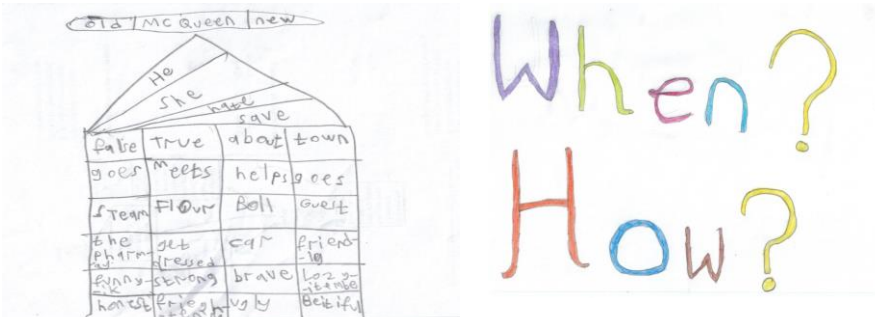 old MC Queen new
He
she
hate
save
false True about town
goes Meets helps goes
STeam Flour Boll Guest
the pharm- get dressed car friend-
funny- strong brave
honest ugly Beitiful
When?
How?